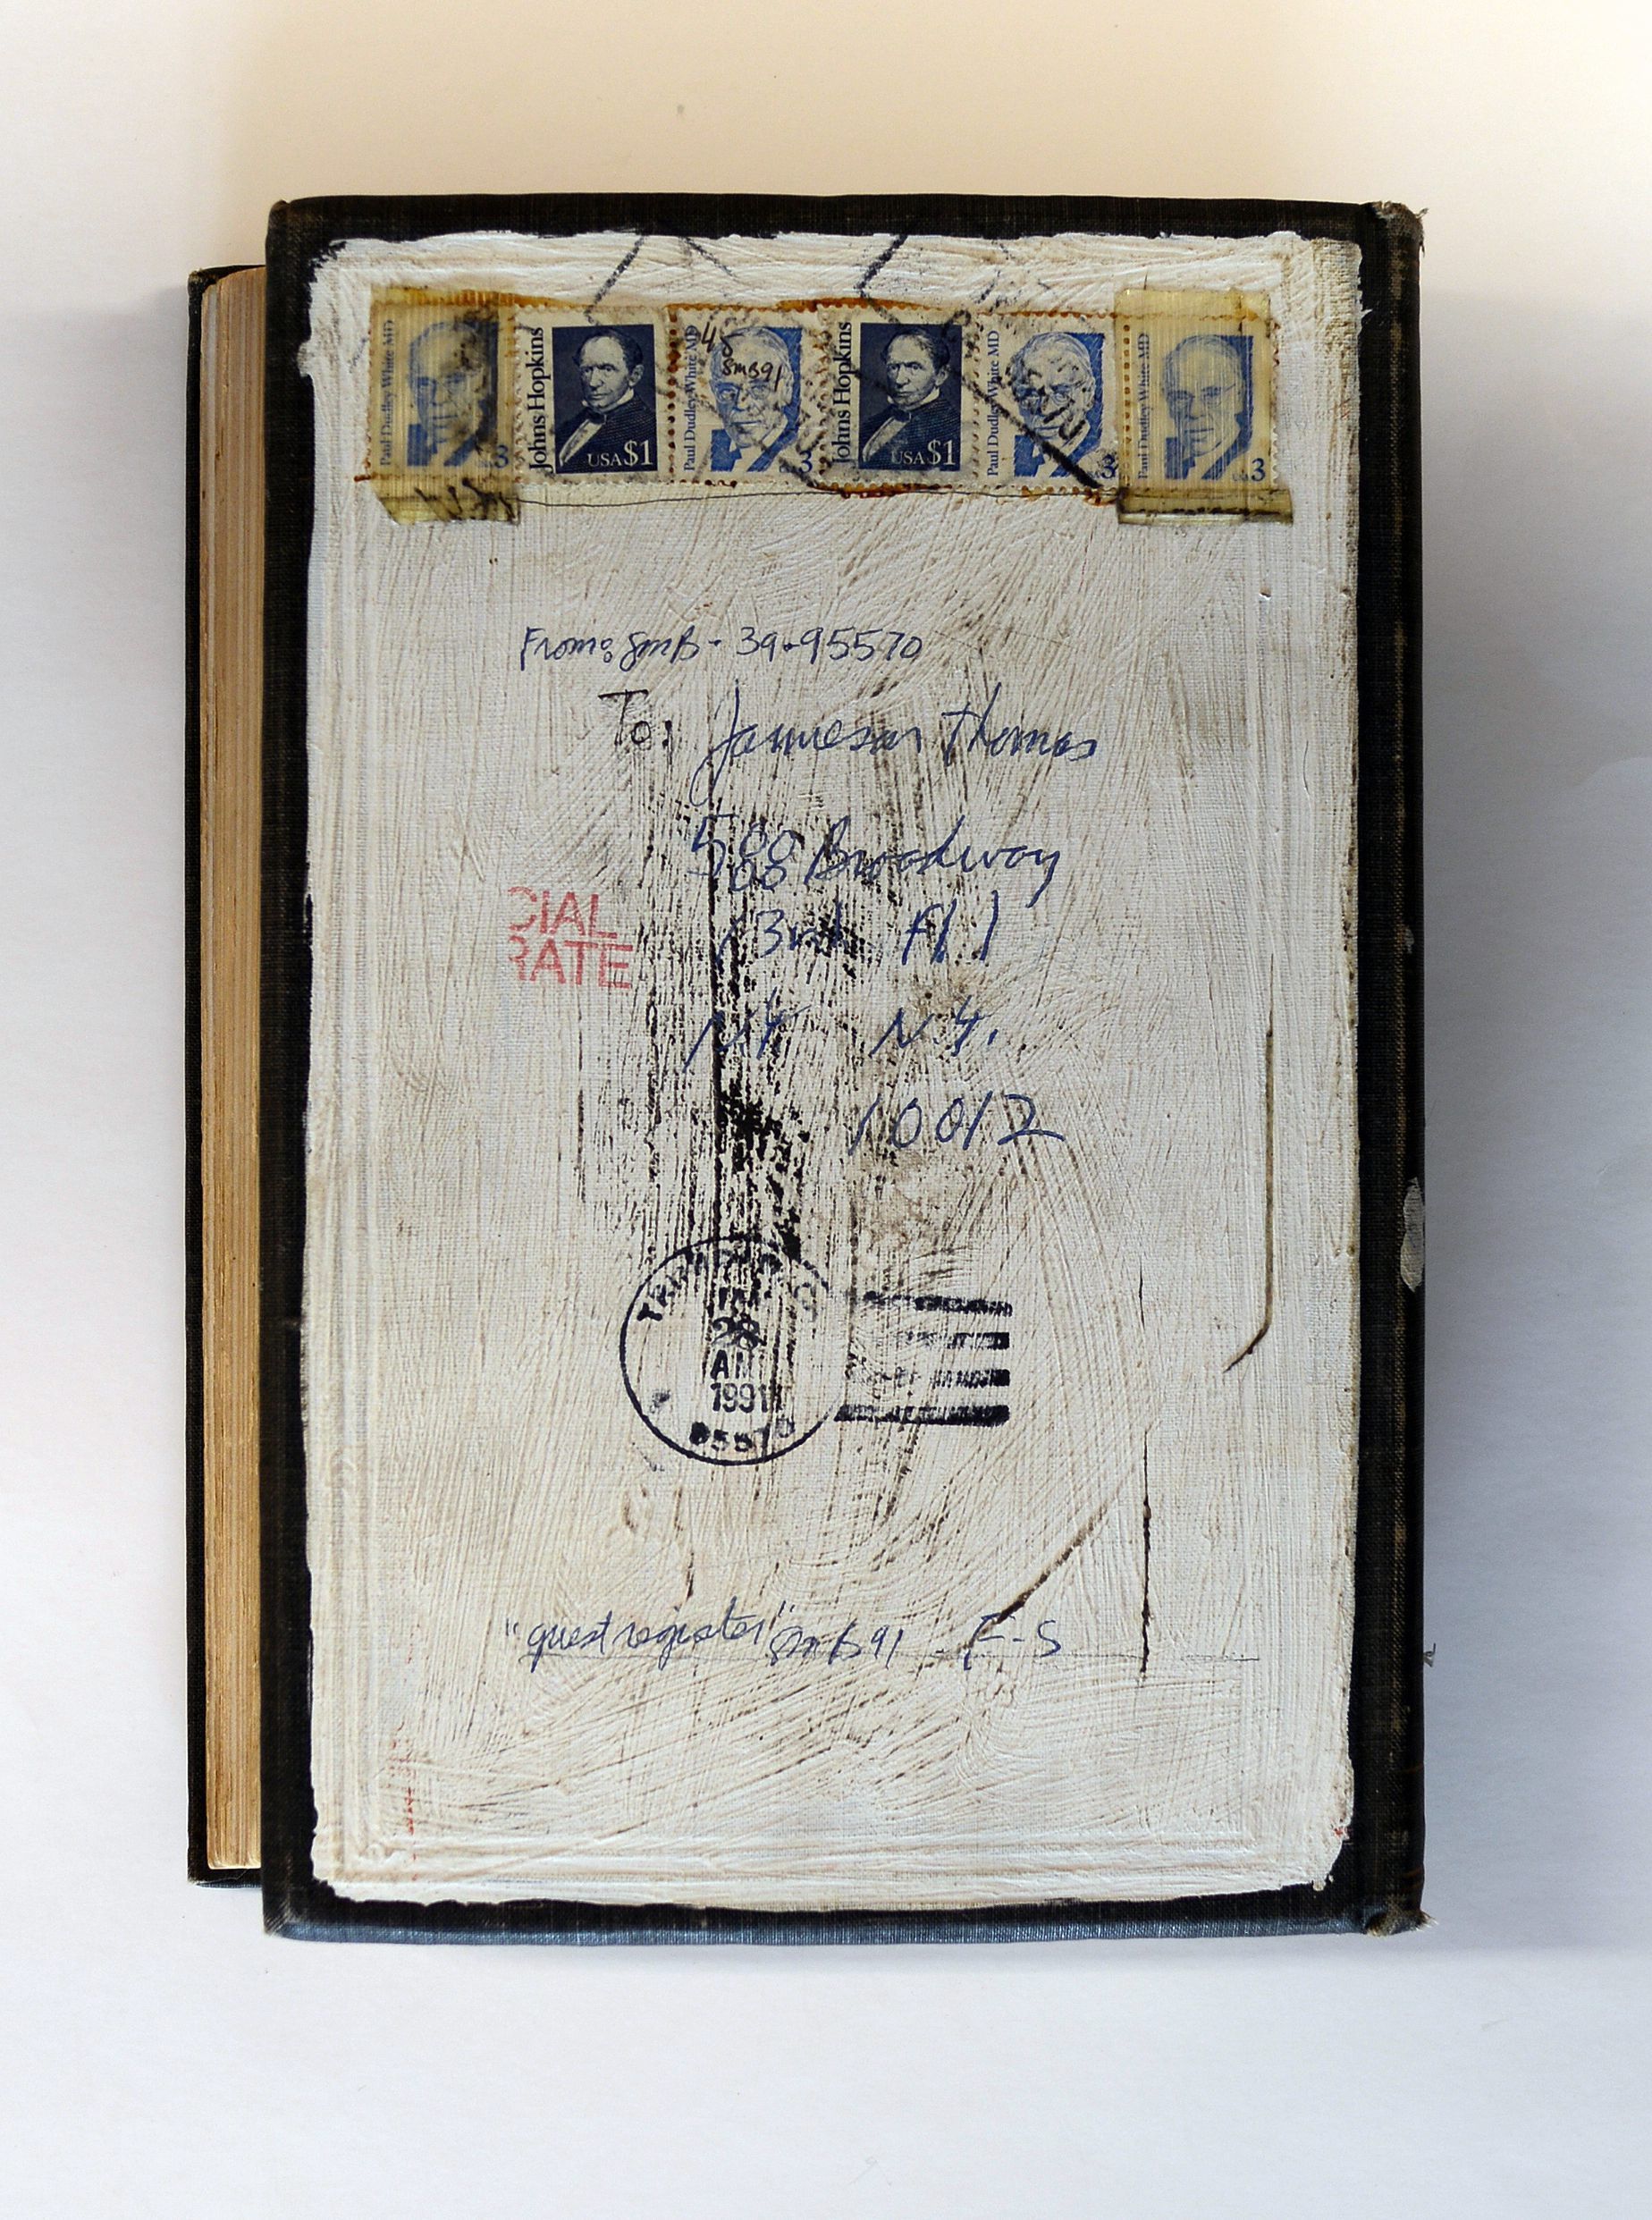 Paul Dudley White MD 3
Johns Hopkins USA $1
Paul Dudley White MD 3
45
SMB91
Johns Hopkins USA $1
Paul Dudley White MD 3
Paul Dudley White MD 3
From: SMB - 39.95570
To: Jamieson Thomas
588 Broadway
3rd Fl
NY N.Y.
10012
CIAL
RATE
28
AM
1991
95570
"guest register" SMB 91 - F-S